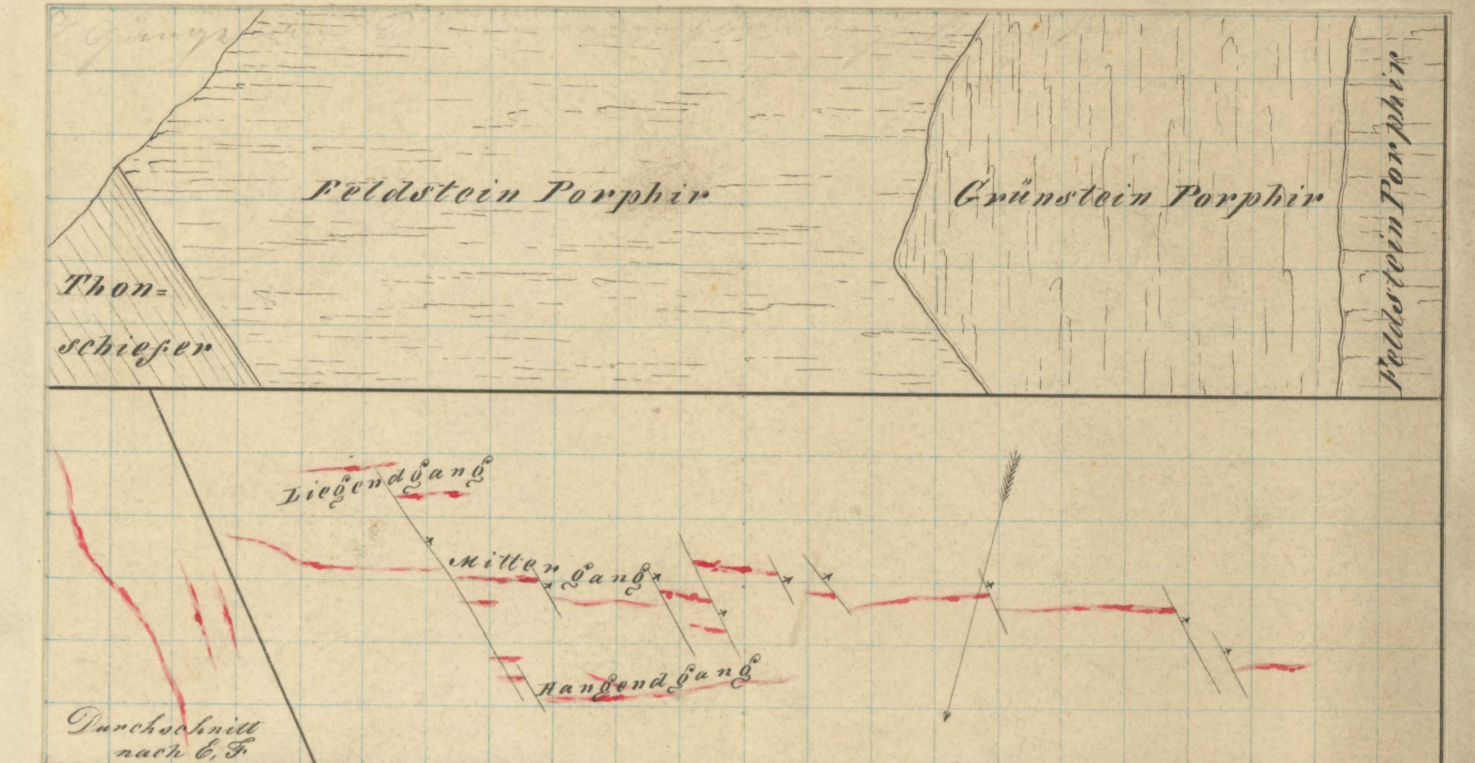 Gänge
Feldstein Porphir
Grünstein Porphir
Feldstein Porphir
Thon=
schiefer
Liegendgang
Mitter gang
Hangend gang
Durchschnitt
nach E, F